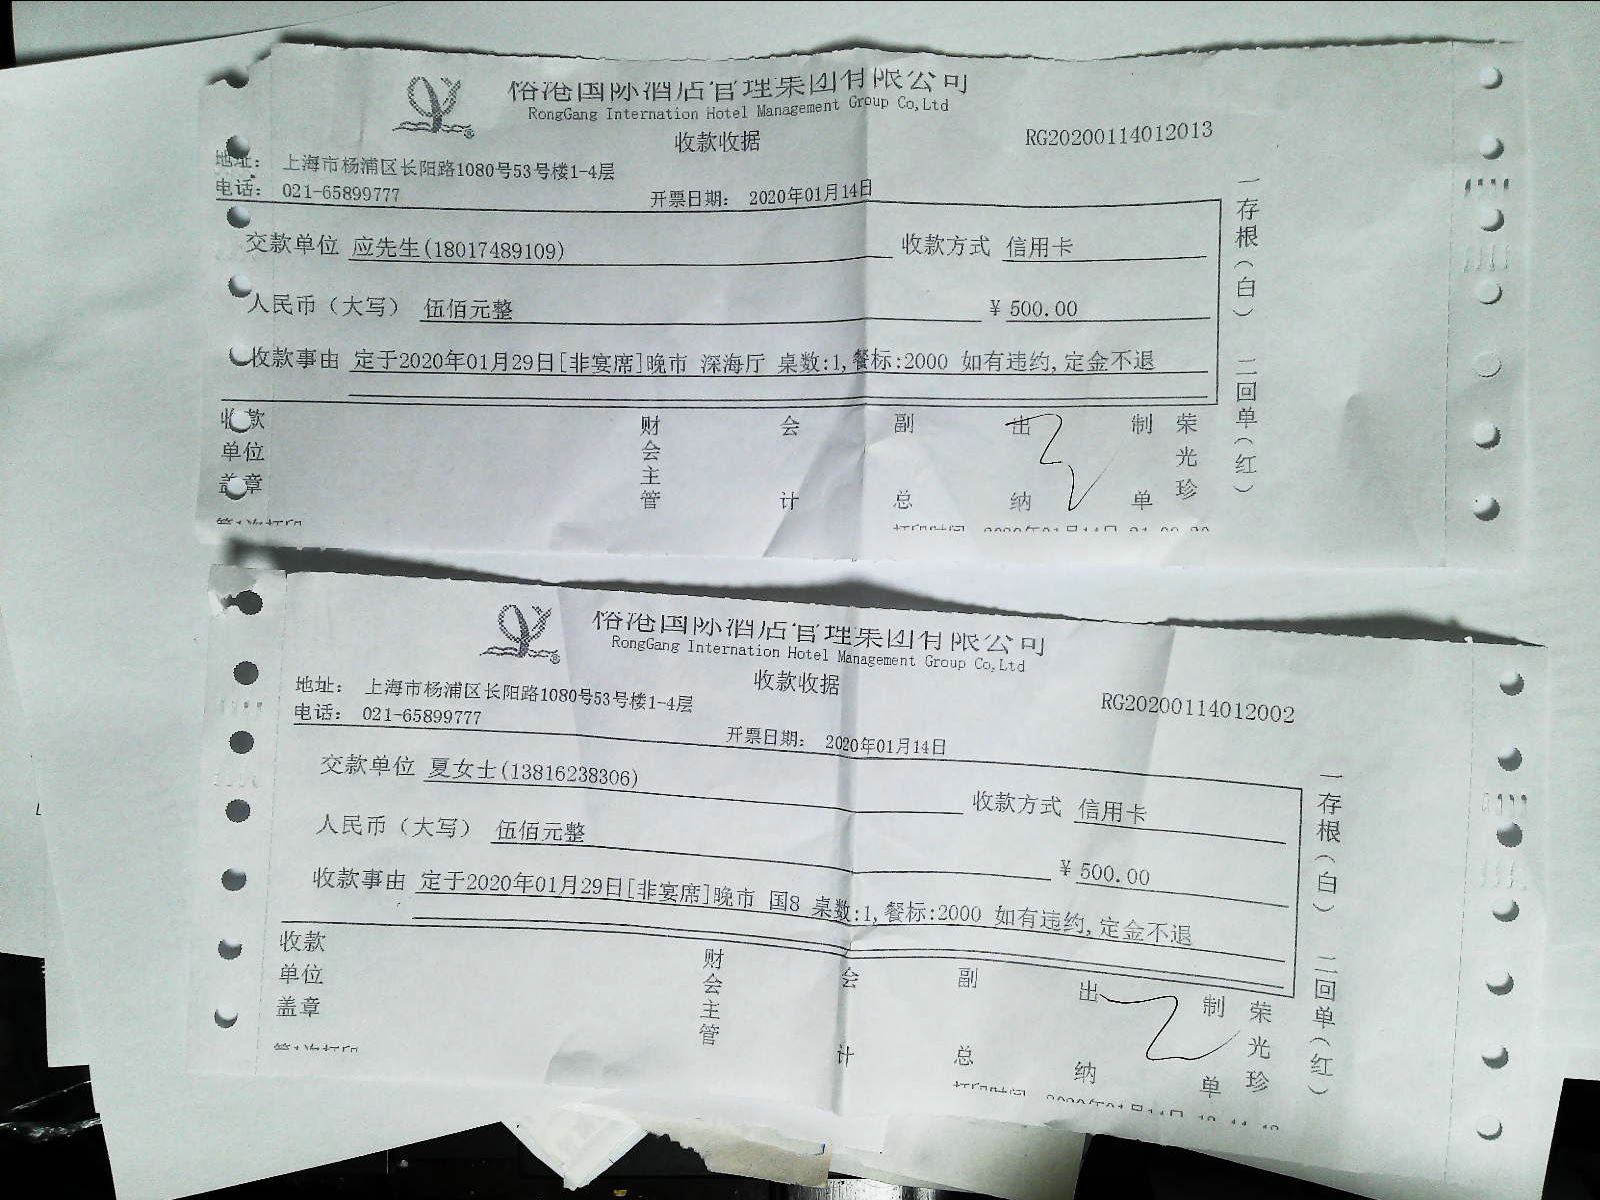 俗港国际酒店管理集团有限公司
RongGang Internation Hotel Management Group Co,Ltd
收款收据
RG20200114012013
地址： 上海市杨浦区长阳路1080号53号楼1-4层
电话： 021-65899777
开票日期： 2020年01月14日
交款单位 应先生(18017489109) 收款方式 信用卡
人民币（大写） 伍佰元整 ¥ 500.00
收款事由 定于2020年01月29日[非宴席]晚市 深海厅 桌数:1,餐标:2000 如有违约,定金不退
一存根（白） 二回单（红）
收款单位盖章 财会主管 会计 副总 出纳 制单 荣光珍
第1次打印
打印时间 2020年01月14日
俗港国际酒店管理集团有限公司
RongGang Internation Hotel Management Group Co,Ltd
收款收据
RG20200114012002
地址： 上海市杨浦区长阳路1080号53号楼1-4层
电话： 021-65899777
开票日期： 2020年01月14日
交款单位 夏女士(13816238306) 收款方式 信用卡
人民币（大写） 伍佰元整 ¥ 500.00
收款事由 定于2020年01月29日[非宴席]晚市 国8 桌数:1,餐标:2000 如有违约,定金不退
一存根（白） 二回单（红）
收款单位盖章 财会主管 会计 副总 出纳 制单 荣光珍
第1次打印
打印时间 2020年01月14日